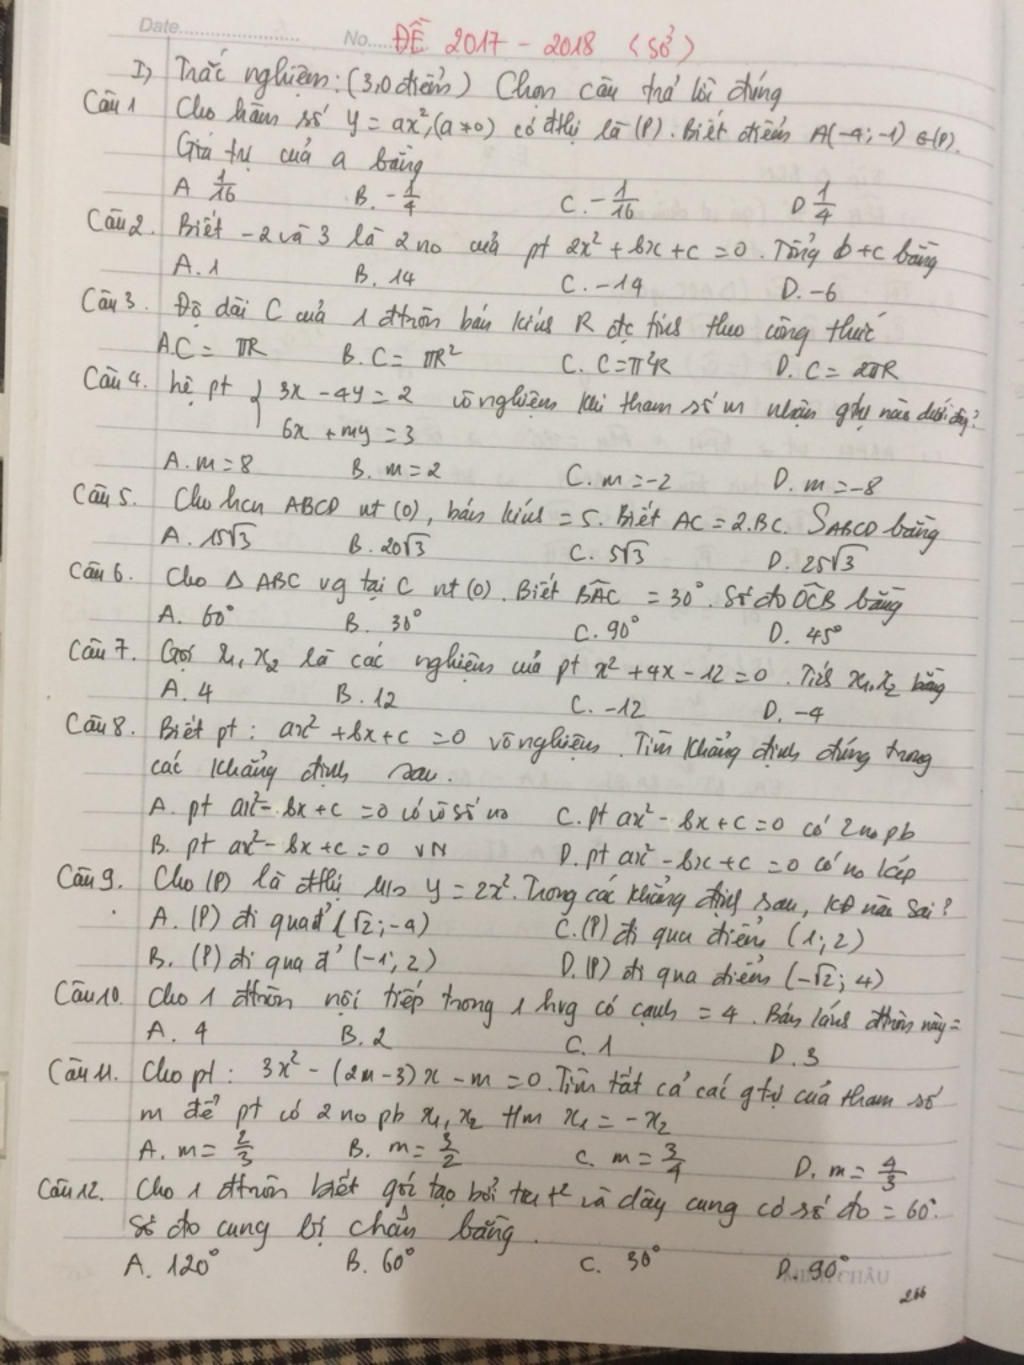 Date.................... No.....ĐỀ 2017 - 2018 (Sở)
I) Trắc nghiệm: (3,0 điểm) Chọn câu trả lời đúng
Câu 1 Cho hàm số y = ax², (a≠0) có đthị là (P). Biết điểm A(-4; -1) ∈(P).
Giá trị của a bằng
A 1/16 B. -1/4 C. -1/16 D 1/4
Câu 2. Biết -2 và 3 là 2 no của pt 2x² + bx + c = 0. Tổng b+c bằng
A. 1 B. 14 C. -14 D. -6
Câu 3. Độ dài C của 1 đtròn bán kính R đc tính theo công thức
A. C = πR B. C = πR² C. C = π²R D. C = 2πR
Câu 4. hệ pt { 3x - 4y = 2 vô nghiệm khi tham số m nhận gtrị nào dưới đây?
6x + my = 3
A. m = 8 B. m = 2 C. m = -2 D. m = -8
Câu 5. Cho hcn ABCD nt (O), bán kính = 5. Biết AC = 2.BC. SABCD bằng
A. 15√3 B. 20√3 C. 5√3 D. 25√3
Câu 6. Cho Δ ABC vg tại C nt (O). Biết BÂC = 30°. Số đo OĈB bằng
A. 60° B. 30° C. 90° D. 45°
Câu 7. Gọi x₁, x₂ là các nghiệm của pt x² + 4x - 12 = 0. Tính x₁.x₂ bằng
A. 4 B. 12 C. -12 D. -4
Câu 8. Biết pt : ax² + bx + c = 0 vô nghiệm. Tìm khẳng định đúng trong
các khẳng định sau.
A. pt ax² - bx + c = 0 có vô số no C. pt ax² - bx + c = 0 có 2 no pb
B. pt ax² - bx + c = 0 VN D. pt ax² - bx + c = 0 có no kép
Câu 9. Cho (P) là đthị h/s y = 2x². Trong các khẳng định sau, KĐ nào sai?
A. (P) đi qua đ' (√2; -4) C. (P) đi qua điểm (1; 2)
B. (P) đi qua đ' (-1; 2) D. (P) đi qua điểm (-√2; 4)
Câu 10. Cho 1 đtròn nội tiếp trong 1 hvg có cạnh = 4. Bán kính đtròn này =
A. 4 B. 2 C. 1 D. 3
Câu 11. Cho pt : 3x² - (2m - 3)x - m = 0. Tìm tất cả các gtrị của tham số
m để pt có 2 no pb x₁, x₂ tm x₁ = -x₂
A. m = 2/3 B. m = 3/2 C. m = 3/4 D. m = 4/3
Câu 12. Cho 1 đtròn biết góc tạo bởi tia t² và dây cung có số đo = 60°.
Số đo cung bị chắn bằng.
A. 120° B. 60° C. 30° D. 90°
MINH CHÂU
266